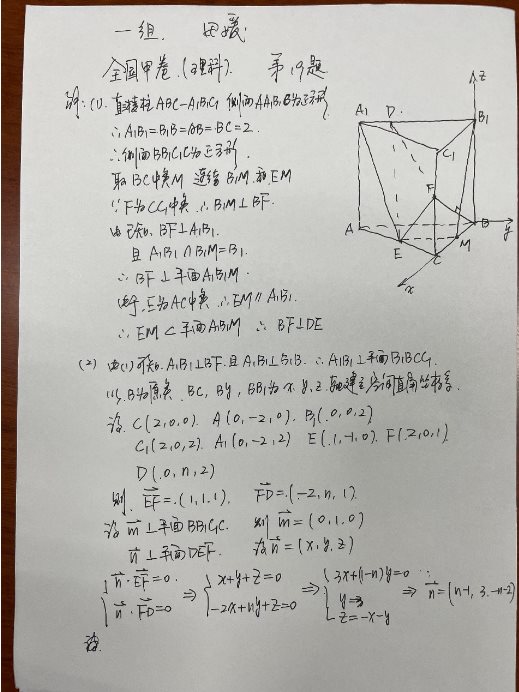 一组.
全国甲卷.(理科). 第19题
(1). 直棱柱ABC-A₁B₁C₁ 侧面AA₁B₁B为正方形
∴A₁B₁=B₁B=AB=BC=2.
∴侧面BB₁C₁C为正方形.
取BC中点M 连结B₁M.和EM
∵F为CC₁中点 ∴B₁M⊥BF.
由已知. BF⊥A₁B₁.
且A₁B₁∩B₁M=B₁.
∴BF⊥平面A₁B₁M.
E为AC中点 ∴EM∥A₁B₁.
∴EM⊂平面A₁B₁M ∴BF⊥DE
A₁ D B₁ C₁ F A B E C M x y z
(2) 由(1)可知. A₁B₁⊥BF.且A₁B₁⊥B₁B. ∴A₁B₁⊥平面B₁BCC₁
以B为原点 BC, By, BB₁为x.y.z.轴建立空间直角坐标系.
设 C(2,0,0). A(0,-2,0). B₁(0,0,2).
C₁(2,0,2). A₁(0,-2,2) E(1,-1,0). F(2,0,1).
D(0,n,2)
则. EF=(1,1,1). FD=(-2,n,1).
设m⊥平面BB₁C₁C. 则m=(0,1,0)
n⊥平面DEF. 设n=(x,y,z)
{n·EF=0. n·FD=0 ⇒ {x+y+z=0 -2x+ny+z=0 ⇒ {3x+(1-n)y=0 y=3 z=-x-y ⇒ n=(n-1,3,-n-2)